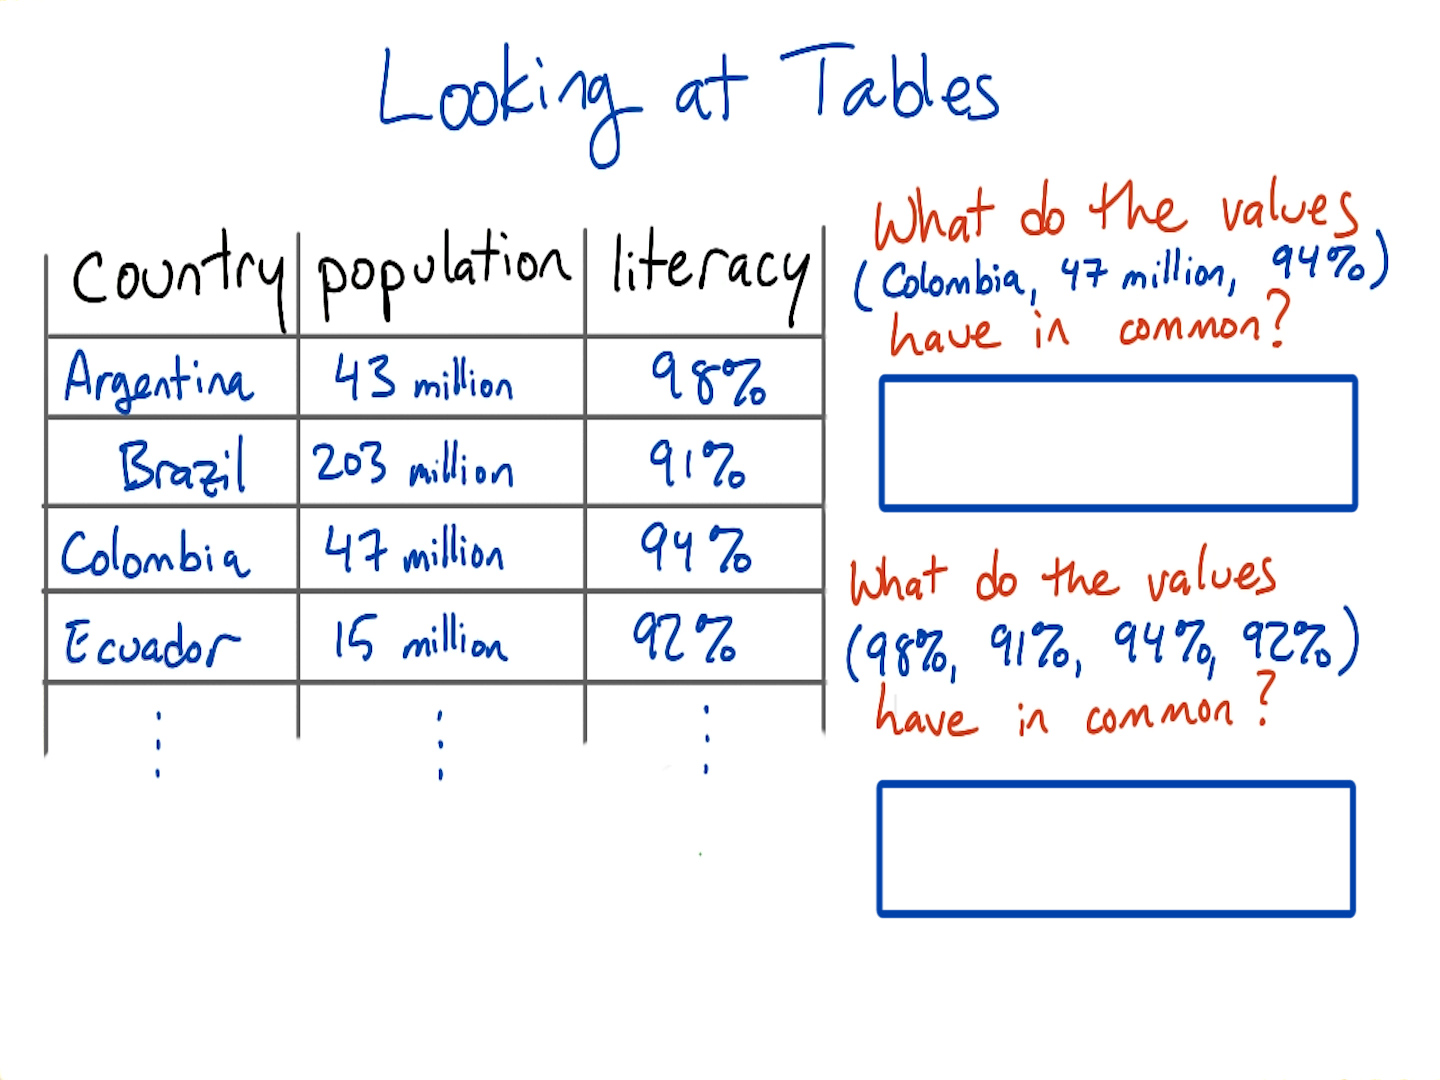 Looking at Tables
country population literacy
Argentina 43 million 98%
Brazil 203 million 91%
Colombia 47 million 94%
Ecuador 15 million 92%
What do the values
(Colombia, 47 million, 94%)
have in common?
What do the values
(98%, 91%, 94%, 92%)
have in common?